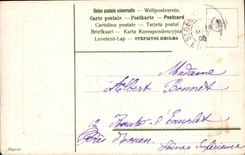 Union postale universelle – Weltpostverein.
Carte postale – Postkarte – Postcard
Cartolina postale – Tarjeta postal
Briefkaart – Karta korespondencyjna
Levelező-Lap – ОТКРЫТОЕ ПИСЬМО
Madame
Albert Bonnet
Route d'
Près Rouen.
Seine Inférieure
Déposé